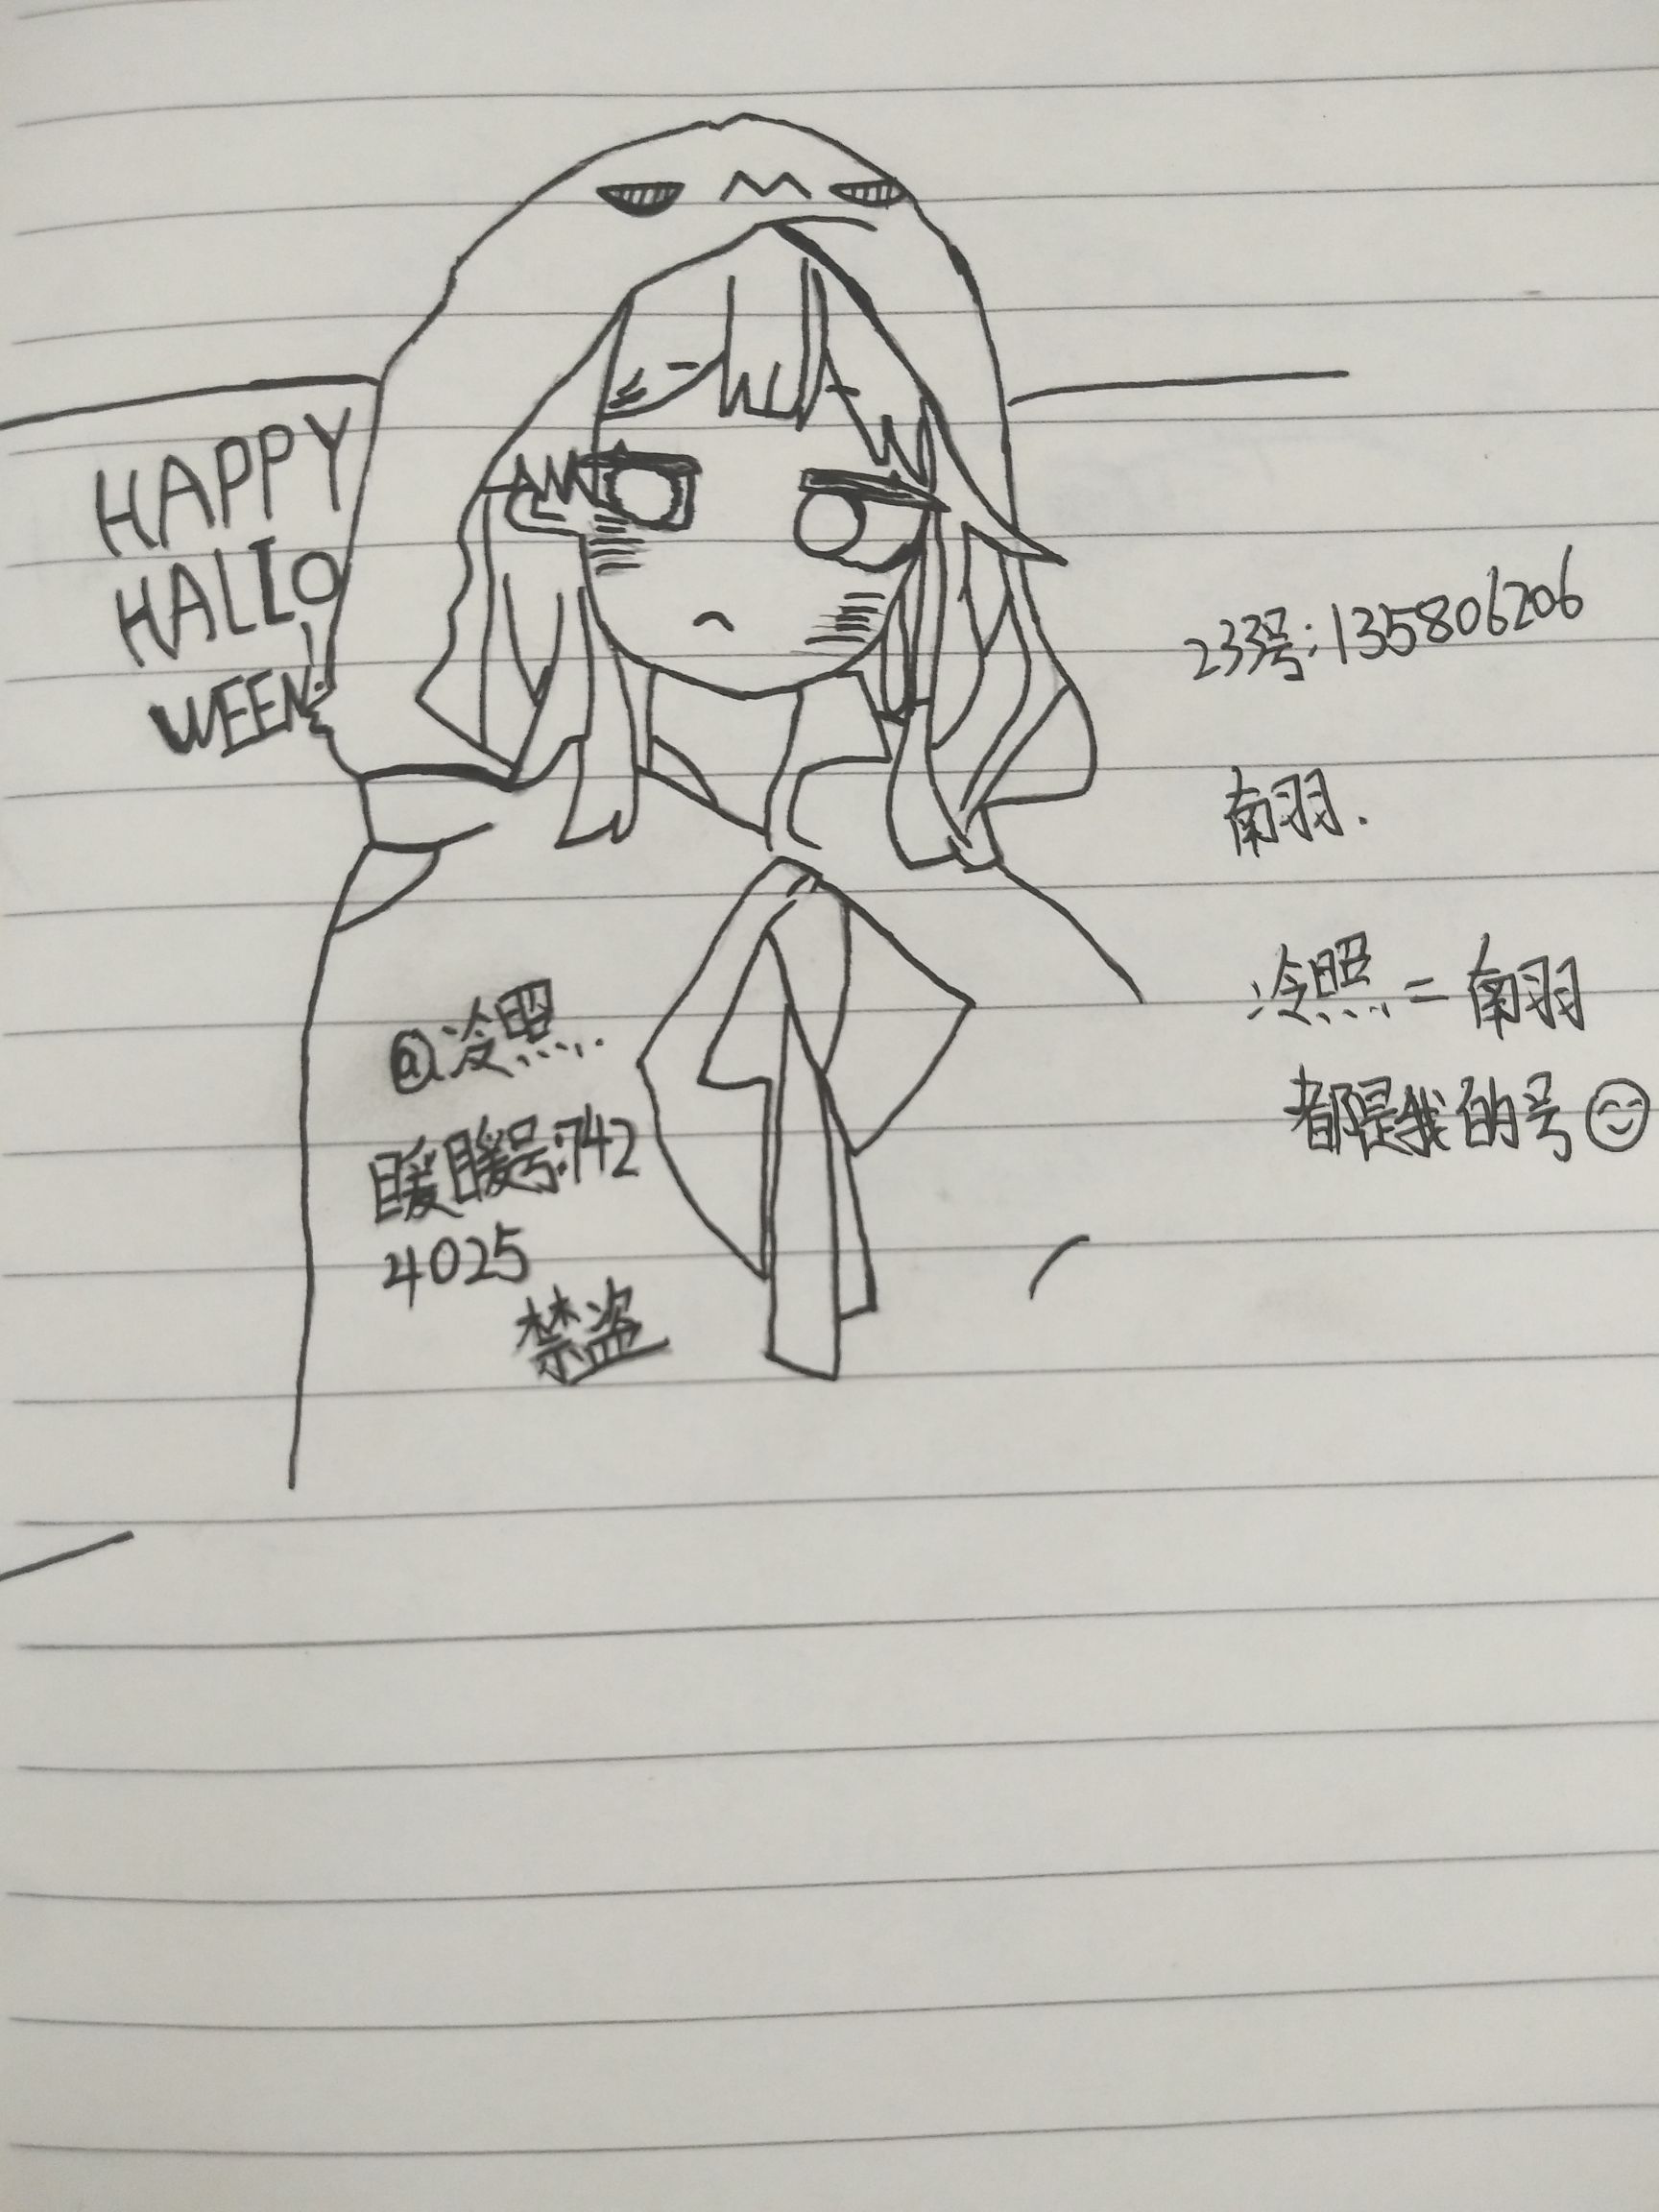 HAPPY
HALLO
WEEN!
233号:135806206
南羽.
冷照.=南羽
都是我的号
@冷照.
暖暖号:742
4025
禁盗